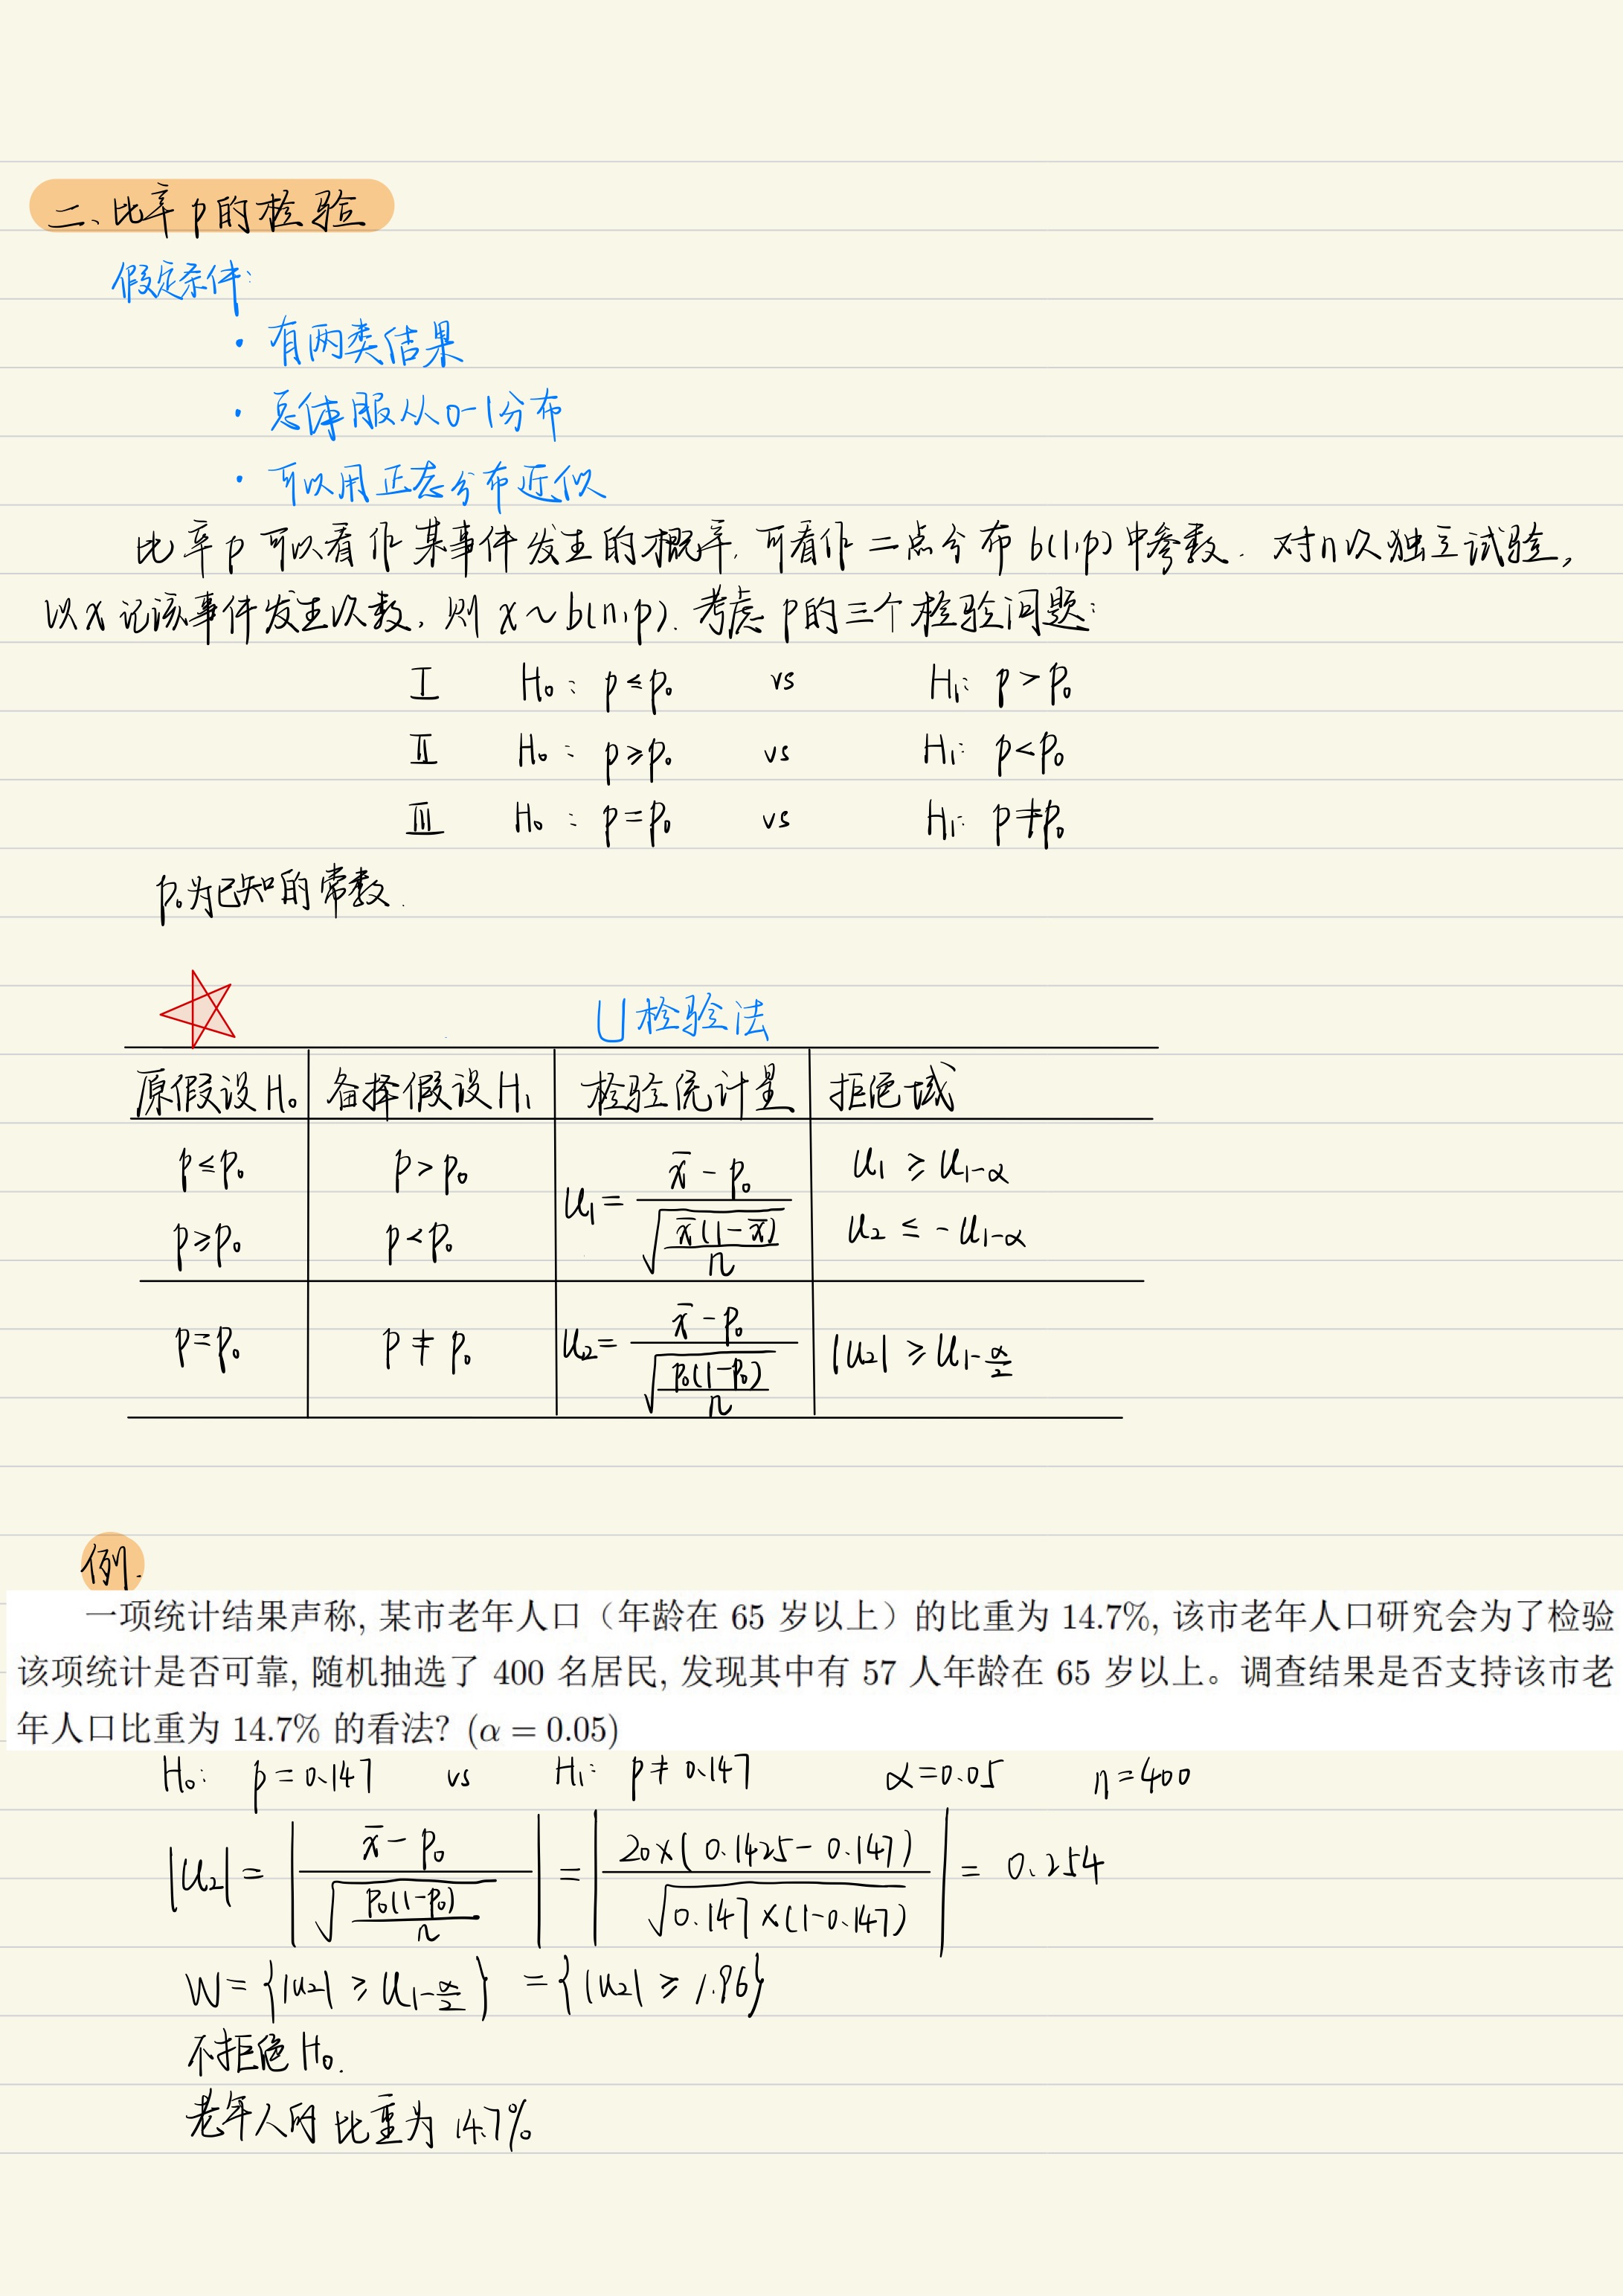 二、比率p的检验
假定条件:
· 有两类结果
· 总体服从0-1分布
· 可以用正态分布近似
比率p可以看作某事件发生的概率,可看作二点分布b(1,p)中参数.对n次独立试验,
以x记该事件发生次数,则x~b(n,p).考虑p的三个检验问题:
I H₀: p≤p₀ vs H₁: p>p₀
II H₀: p≥p₀ vs H₁: p<p₀
III H₀: p=p₀ vs H₁: p≠p₀
p₀为已知的常数.
U检验法
原假设H₀ 备择假设H₁ 检验统计量 拒绝域
p≤p₀ p>p₀ u₁ = (x̄-p₀)/√(x̄(1-x̄)/n) u₁ ≥ u_{1-α}
p≥p₀ p<p₀ u₂ ≤ -u_{1-α}
p=p₀ p≠p₀ u₂ = (x̄-p₀)/√(p₀(1-p₀)/n) |u₂| ≥ u_{1-α/2}
例.
一项统计结果声称, 某市老年人口（年龄在 65 岁以上）的比重为 14.7%, 该市老年人口研究会为了检验
该项统计是否可靠, 随机抽选了 400 名居民, 发现其中有 57 人年龄在 65 岁以上。调查结果是否支持该市老
年人口比重为 14.7% 的看法? (α = 0.05)
H₀: p=0.147 vs H₁: p≠0.147 α=0.05 n=400
|u₂| = |(x̄-p₀)/√(p₀(1-p₀)/n)| = |20×(0.1425-0.147)/√(0.147×(1-0.147))| = 0.254
W={|u₂| ≥ u_{1-α/2}} = {|u₂| ≥ 1.96}
不拒绝H₀.
老年人的比重为14.7%